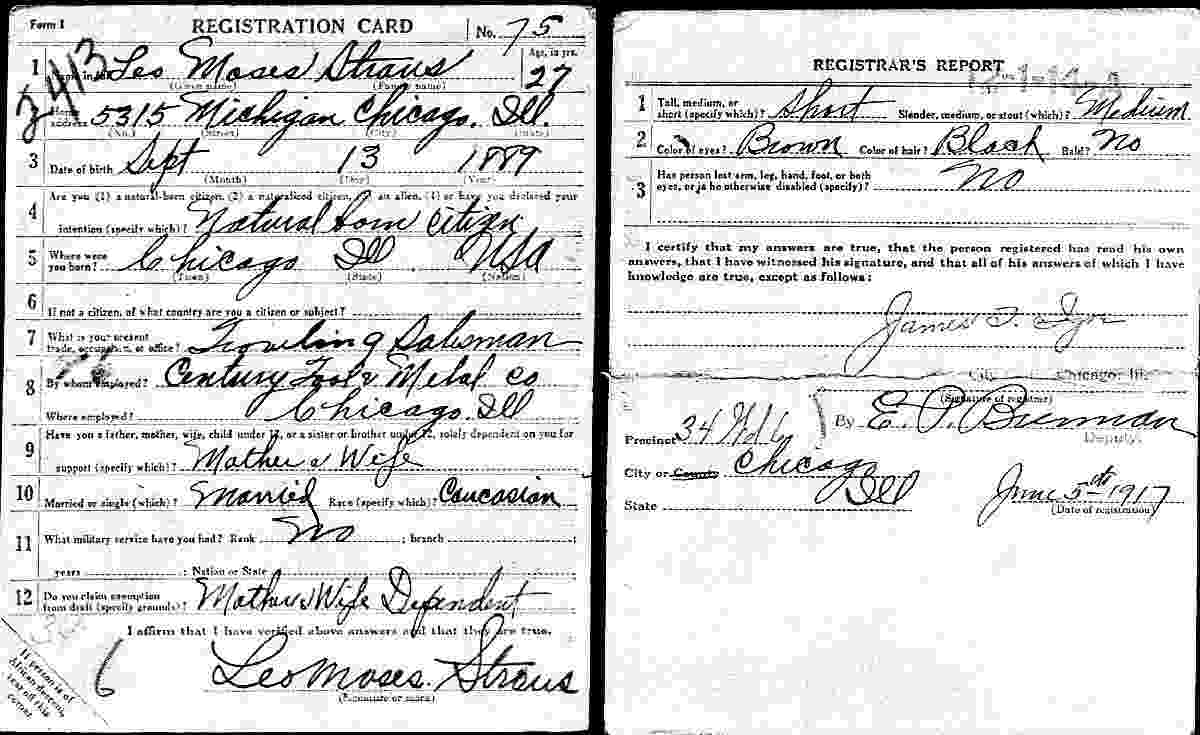 Form 1 REGISTRATION CARD No. 75
3413
1 Name in full Leo Moses Straus Age, in yrs. 27
(Given name) (Family name)
2 Home address 5315 Michigan Chicago, Ill.
(No.) (Street) (City) (State)
3 Date of birth Sept 13 1889
(Month) (Day) (Year)
4 Are you (1) a natural-born citizen, (2) a naturalized citizen, (3) an alien, (4) or have you declared your
intention (specify which)? Natural born citizen
5 Where were you born? Chicago Ill. USA
(Town) (State) (Nation)
6 If not a citizen, of what country are you a citizen or subject?
7 What is your present trade, occupation, or office? Traveling Salsman
8 By whom employed? Century Metal Co
Where employed? Chicago. Ill
9 Have you a father, mother, wife, child under 12, or a sister or brother under 12, solely dependent on you for
support (specify which)? Mother & Wife
10 Married or single (which)? Married Race (specify which)? Caucasian
11 What military service have you had? Rank No ; branch ;
years ; Nation or State
12 Do you claim exemption from draft (specify grounds)? Mother & Wife Dependent
I affirm that I have verified above answers and that they are true.
6
Leo Moses. Straus
(Signature or mark)
If person is of
African descent,
tear off this
corner
REGISTRAR'S REPORT
1 Tall, medium, or short (specify which)? Short Slender, medium, or stout (which)? Medium
2 Color of eyes? Brown Color of hair? Black Bald? No
3 Has person lost arm, leg, hand, foot, or both
eyes, or is he otherwise disabled (specify)? No
I certify that my answers are true, that the person registered has read his own
answers, that I have witnessed his signature, and that all of his answers of which I have
knowledge are true, except as follows:
James
City Chicago, Ill.
(Signature of registrar)
By E. P. Brennan
Deputy.
Precinct 34
City or County Chicago
State Ill
June 5th 1917
(Date of registration)